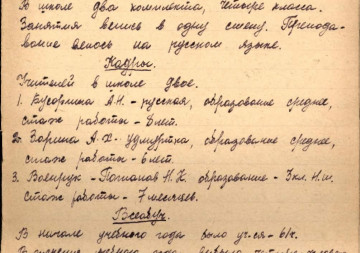 В школе два комплекта, четыре класса.
Занятия велись в одну смену. Препода-
вание велось на русском языке.
Кадры.
Учителей в школе двое.
1. Бусоргина А.Н. - русская, образование среднее,
стаж работы - 8 лет.
2. Зорина А. Х. - удмуртка, образование среднее,
стаж работы - 6 лет.
3. Военрук - Н. Н. образование - 7 кл. Н.Ш.
стаж работы - 7 месяцев.
Всеобуч.
В начале учебного года было уч-ся - 61ч.
учебного года